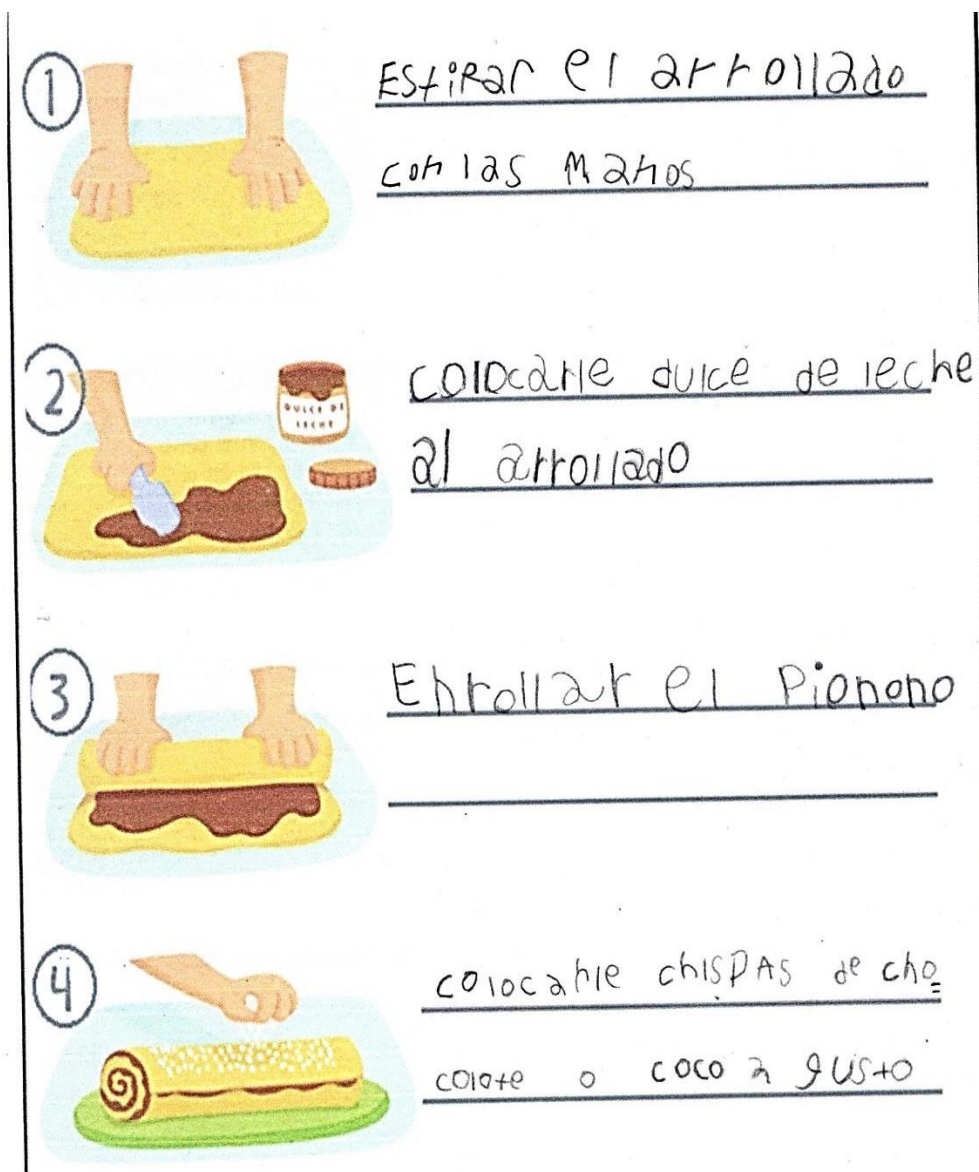 1
EStiRar el arrollado
con las manos
2
DULCE DE
LECHE
colocarle dulce de leche
al arrollado
3
Enrollar el Pionono
4
colocarle chisPAs de cho=
colote o coco a gusto